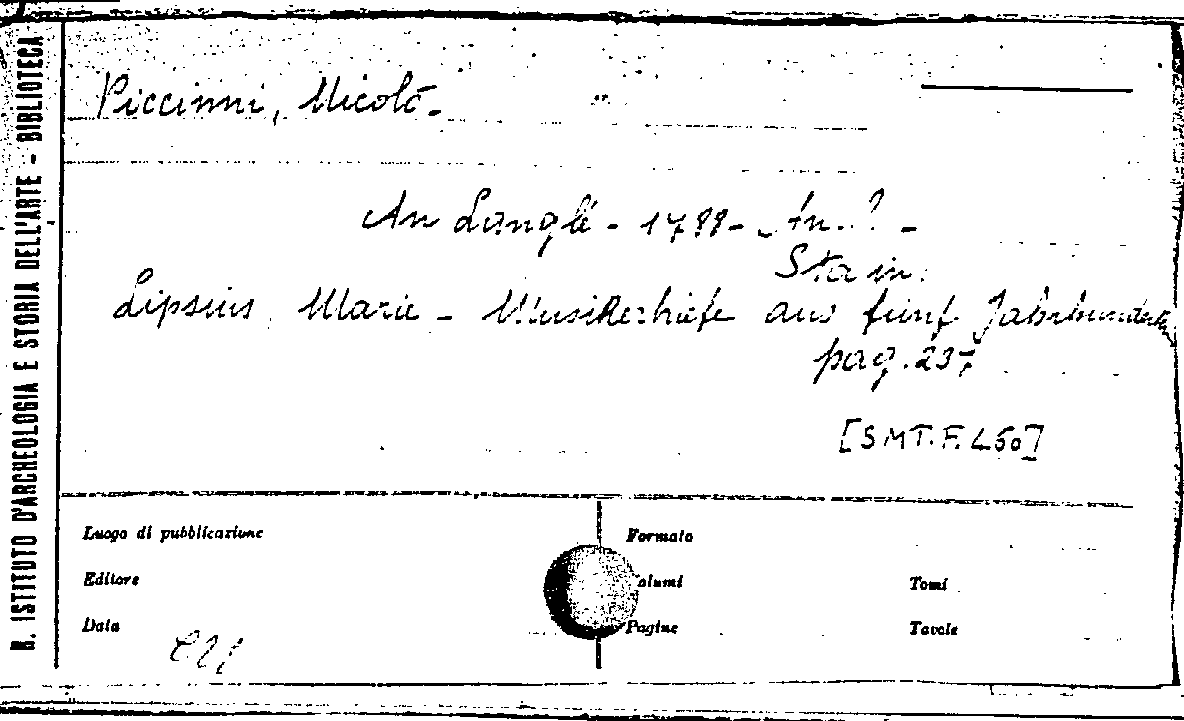 R. ISTITUTO D'ARCHEOLOGIA E STORIA DELL'ARTE - BIBLIOTECA
Piccinni, Nicolò -
An Langlé - 1799 - An..? -
Stain.
Lipsius, Marie - Musikerbriefe aus fünf Jahrhunderten
pag. 237
[SMT.F.450]
Luogo di pubblicazione
Formato
Editore
Volumi
Tomi
Data
Pagine
Tavole